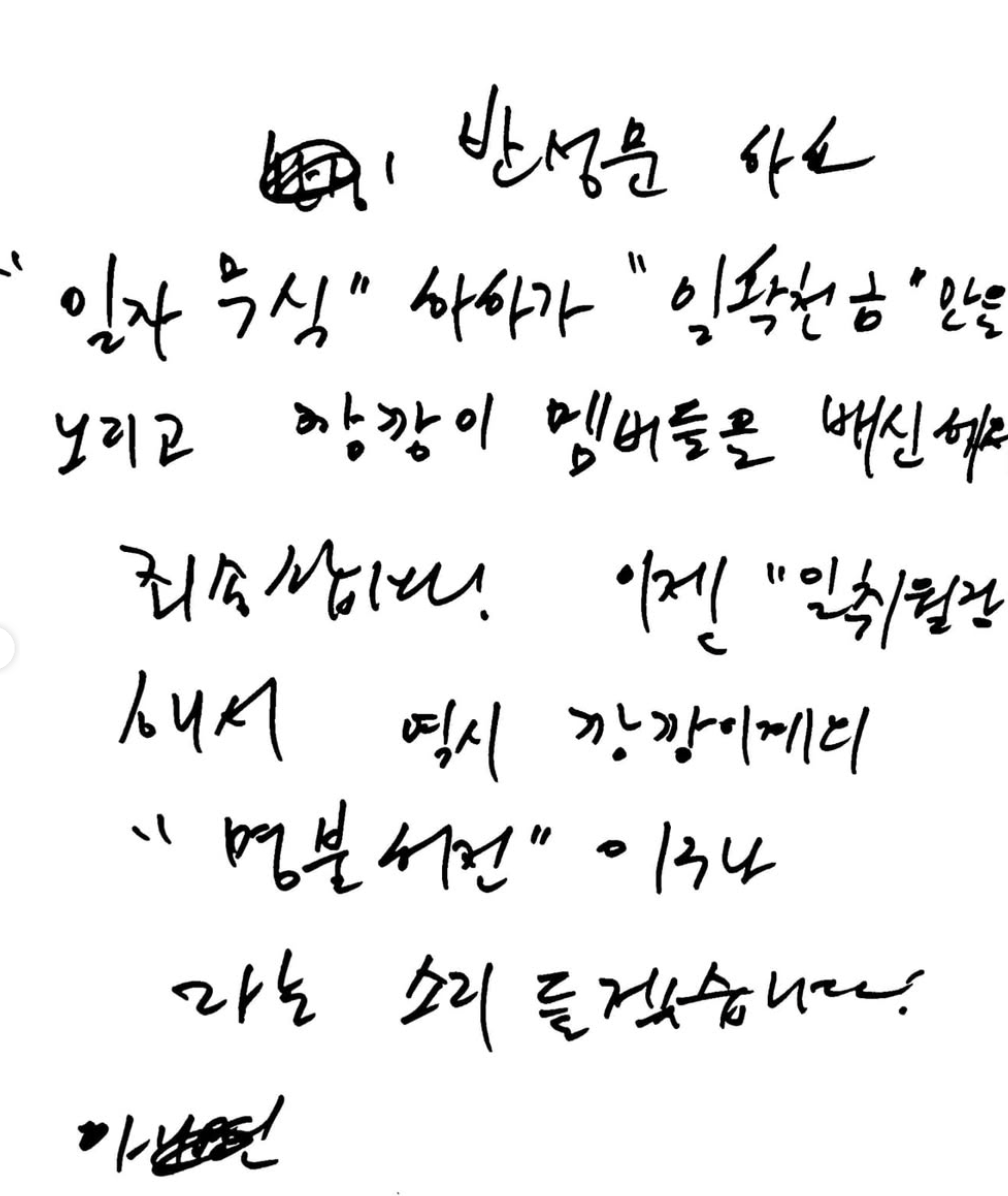 반성문
"일자 무식" 하하가 "일확천금"만을
노리고 깡깡이 멤버들을 배신해
죄송합니다! 이젠 "일취월장
해서 역시 깡깡이
"명불허전" 이구나
라는 소리 듣겠습니다!